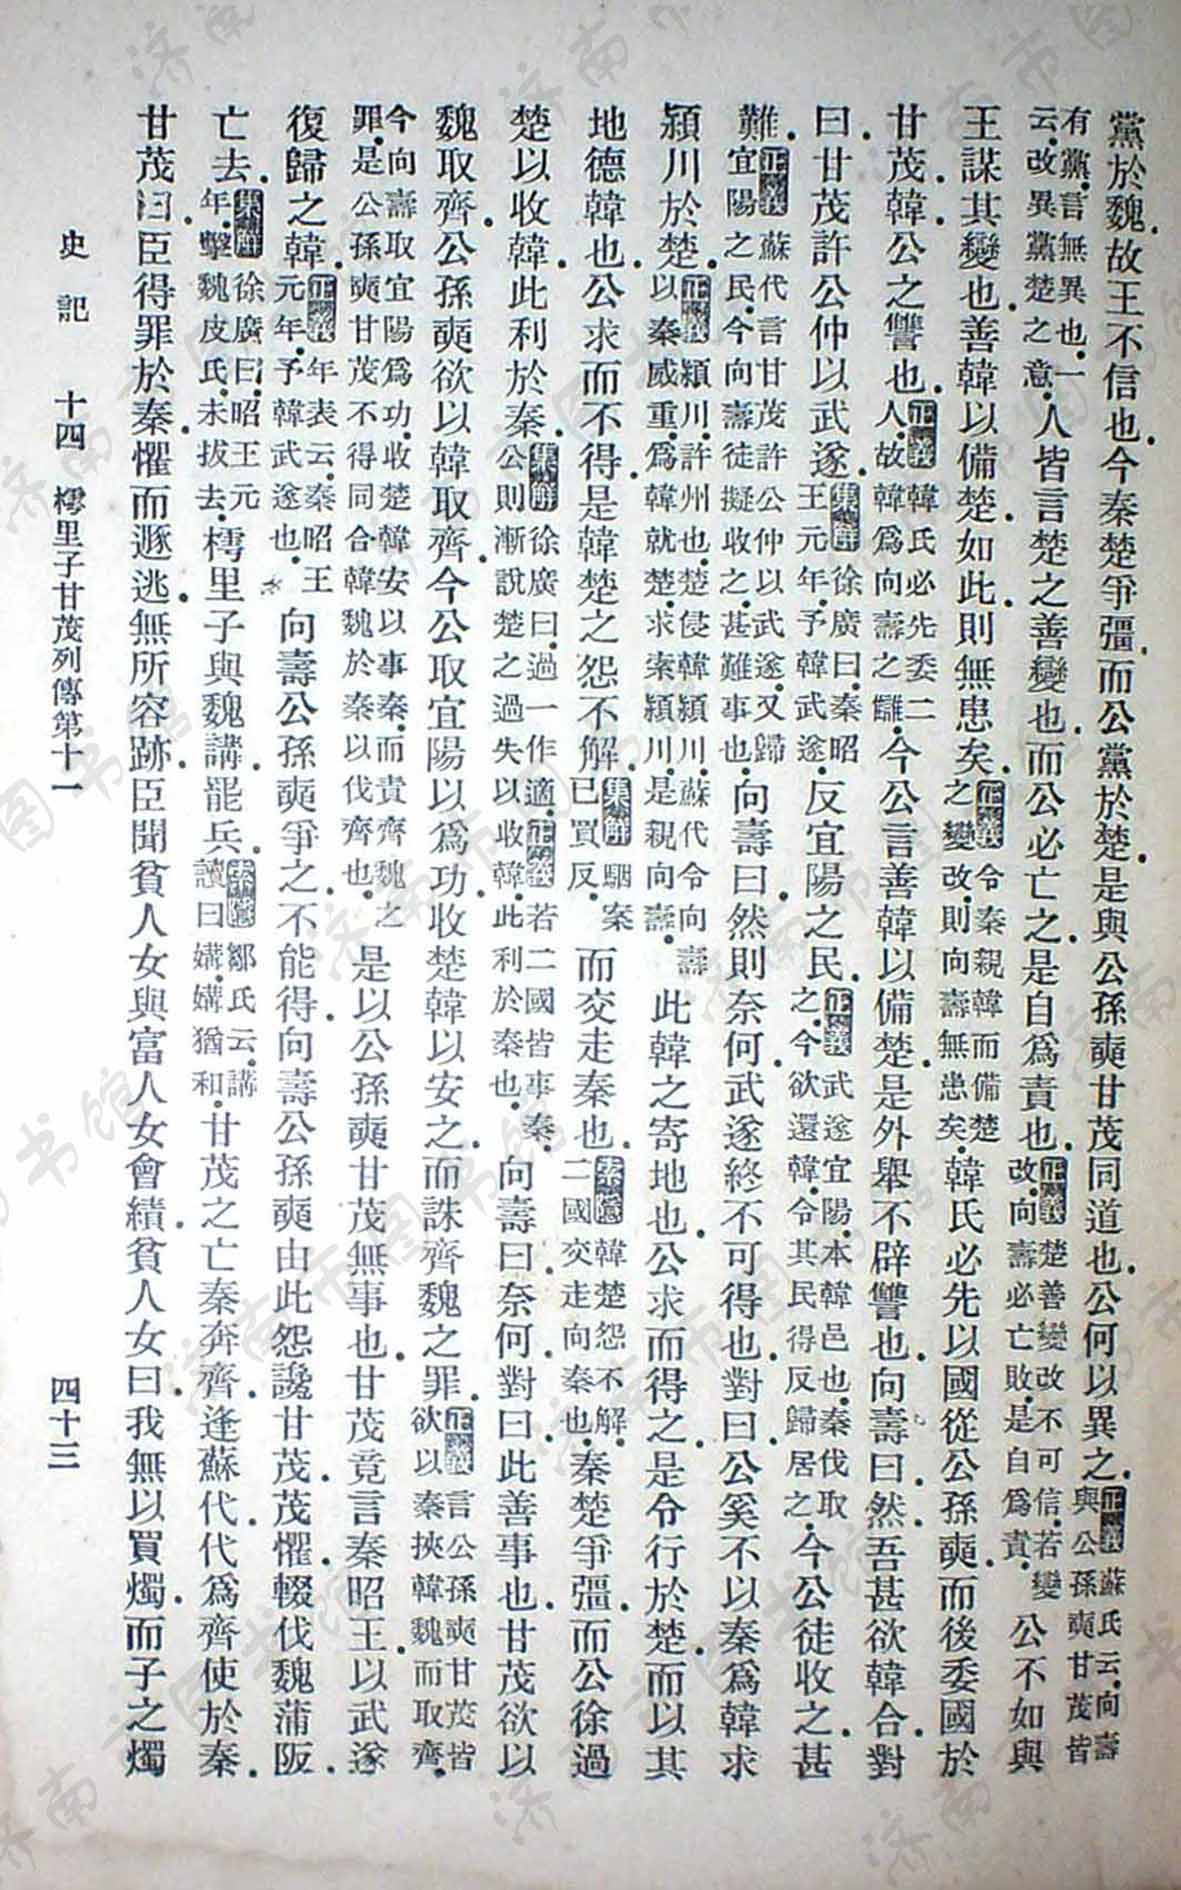 黨於魏．故王不信也．今秦楚爭彊．而公黨於楚．是與公孫奭甘茂同道也．公何以異之．正義蘇氏云．向壽與公孫奭甘茂皆
有黨．言無異也．一云．改異黨楚之意．人皆言楚之善變也．而公必亡之．是自爲責也．正義楚善變改不可信．若變改．向壽必亡敗．是自爲責．公不如與
王謀其變也．善韓以備楚．如此．則無患矣．正義令秦親韓而備楚之變改．則向壽無患矣．韓氏必先以國從公孫奭．而後委國於
甘茂．韓．公之讐也．正義韓氏必先委二人．故韓爲向壽之讎．今公言善韓以備楚．是外舉不辟讐也．向壽曰．然．吾甚欲韓合．對
曰．甘茂許公仲以武遂．集解徐廣曰．秦昭王元年．予韓武遂．反宜陽之民．正義武遂宜陽．本韓邑也．秦伐取之．今欲還韓．令其民得反歸居之．今公徒收之．甚
難．正義蘇代言甘茂許公仲以武遂．又歸宜陽之民．今向壽徒擬收之．甚難事也．向壽曰．然則奈何．武遂終不可得也．對曰．公奚不以秦爲韓求
潁川於楚．正義潁川．許州也．楚侵韓潁川．蘇代令向壽以秦威重．爲韓就楚．求索潁川．是親向壽．此韓之寄地也．公求而得之．是令行於楚．而以其
地德韓也．公求而不得．是韓楚之怨不解．集解駰案已買反．而交走秦也．索隱韓楚怨不解．二國交走向秦也．秦楚爭彊．而公徐過
楚以收韓．此利於秦．集解徐廣曰．過一作適．正義若二國皆事秦公則漸說楚之過失以收韓．此利於秦也．向壽曰．奈何．對曰．此善事也．甘茂欲以
魏取齊．公孫奭欲以韓取齊．今公取宜陽以爲功．收楚韓以安之．而誅齊魏之罪．正義言公孫奭甘茂皆欲以秦挾韓魏而取齊．
今向壽取宜陽爲功．收楚韓安以事秦．而責齊魏之罪．是公孫奭甘茂不得同合韓魏於秦以伐齊也．是以公孫奭甘茂無事也．甘茂竟言秦昭王．以武遂
復歸之韓．正義年表云．秦昭王元年．予韓武遂也．向壽公孫奭爭之．不能得．向壽公孫奭由此怨讒甘茂．茂懼．輟伐魏蒲阪．
亡去．集解徐廣曰．昭王元年．擊魏皮氏．未拔去．樗里子與魏講．罷兵．索隱鄒氏云．講讀曰媾．媾猶和．甘茂之亡秦奔齊．逢蘇代．代爲齊使於秦．
甘茂曰．臣得罪於秦．懼而遯逃．無所容跡．臣聞貧人女與富人女會績．貧人女曰．我無以買燭．而子之燭
史記 十四 樗里子甘茂列傳第十一 四十三